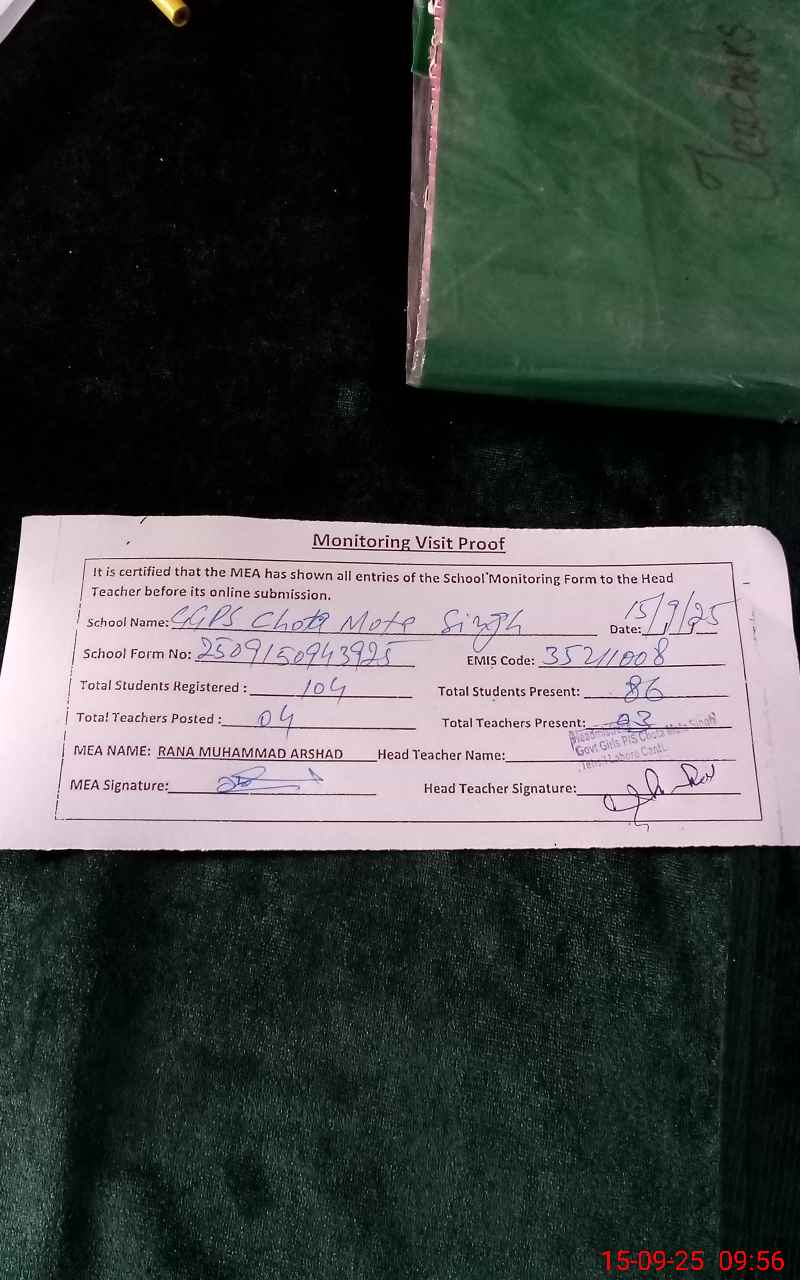 Teachers
Monitoring Visit Proof
It is certified that the MEA has shown all entries of the School Monitoring Form to the Head
Teacher before its online submission.
School Name: GGPS Chota Mota Singh Date: 15/9/25
School Form No: 2509150943925 EMIS Code: 35211008
Total Students Registered : 104 Total Students Present: 86
Total Teachers Posted : 04 Total Teachers Present: 03
MEA NAME: RANA MUHAMMAD ARSHAD Head Teacher Name:
Govt Girls P/S Chota Mota Singh
Lahore Cantt.
MEA Signature: Head Teacher Signature:
15-09-25 09:56